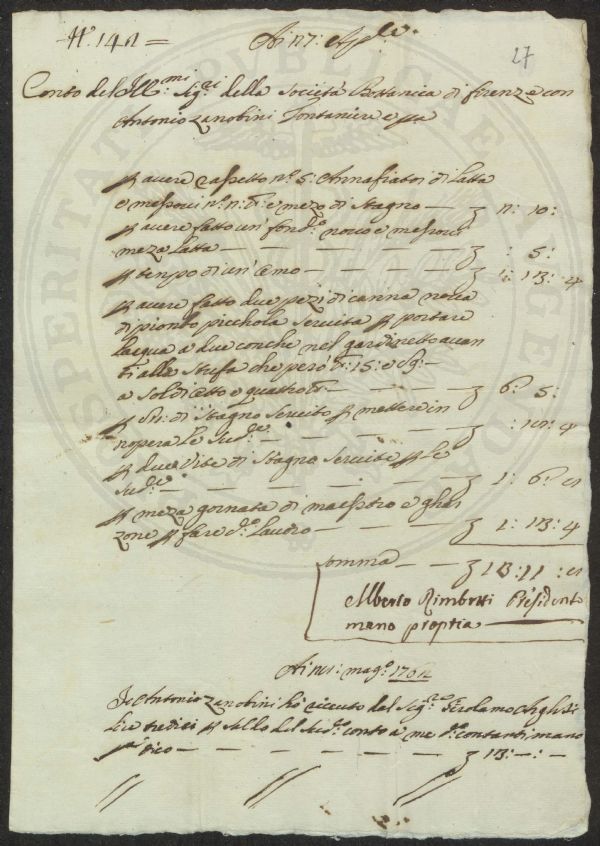 N.° 141 =
27
Conto del Ill.mi Sig.ri della Società Botanica di firenze con
Antonio Zanobini Fontaniere e pa
p avere rasetto n.° 5: Annafiatoi di latta
e messovi di Stagno — 10:
p avere fatto un' fond.o novo e messovi
meza latta — — — — 5:
p tenpo di un' — — — 13: 4
p avere fatto due pezi di canna nova
di pionbo picchola servita p portare
lacqua a due conche nel gardinetto avan
ti alla Stufa che però 15: e
a Soldi otto e quattro — 6: 5:
p di Stagno Servito p mettere in
nopera le Sud.e — — — 4
p due Vite di Stagno Servite p le
Sud.e — — — — 1: 6:
p meza gornata di maestro e ghar
zone p fare d.o lavoro — — — 1: 13: 4
Somma — 13: 11:
Alberto Rimbotti Presidente
mano propria —
mag.o
Io Antonio Zanobini hò riceuto dal Sig.re Girolamo
lire tredici p Saldo del Sud.o conto a me d.o contanti mano
pa dico — — — — 13: —: —